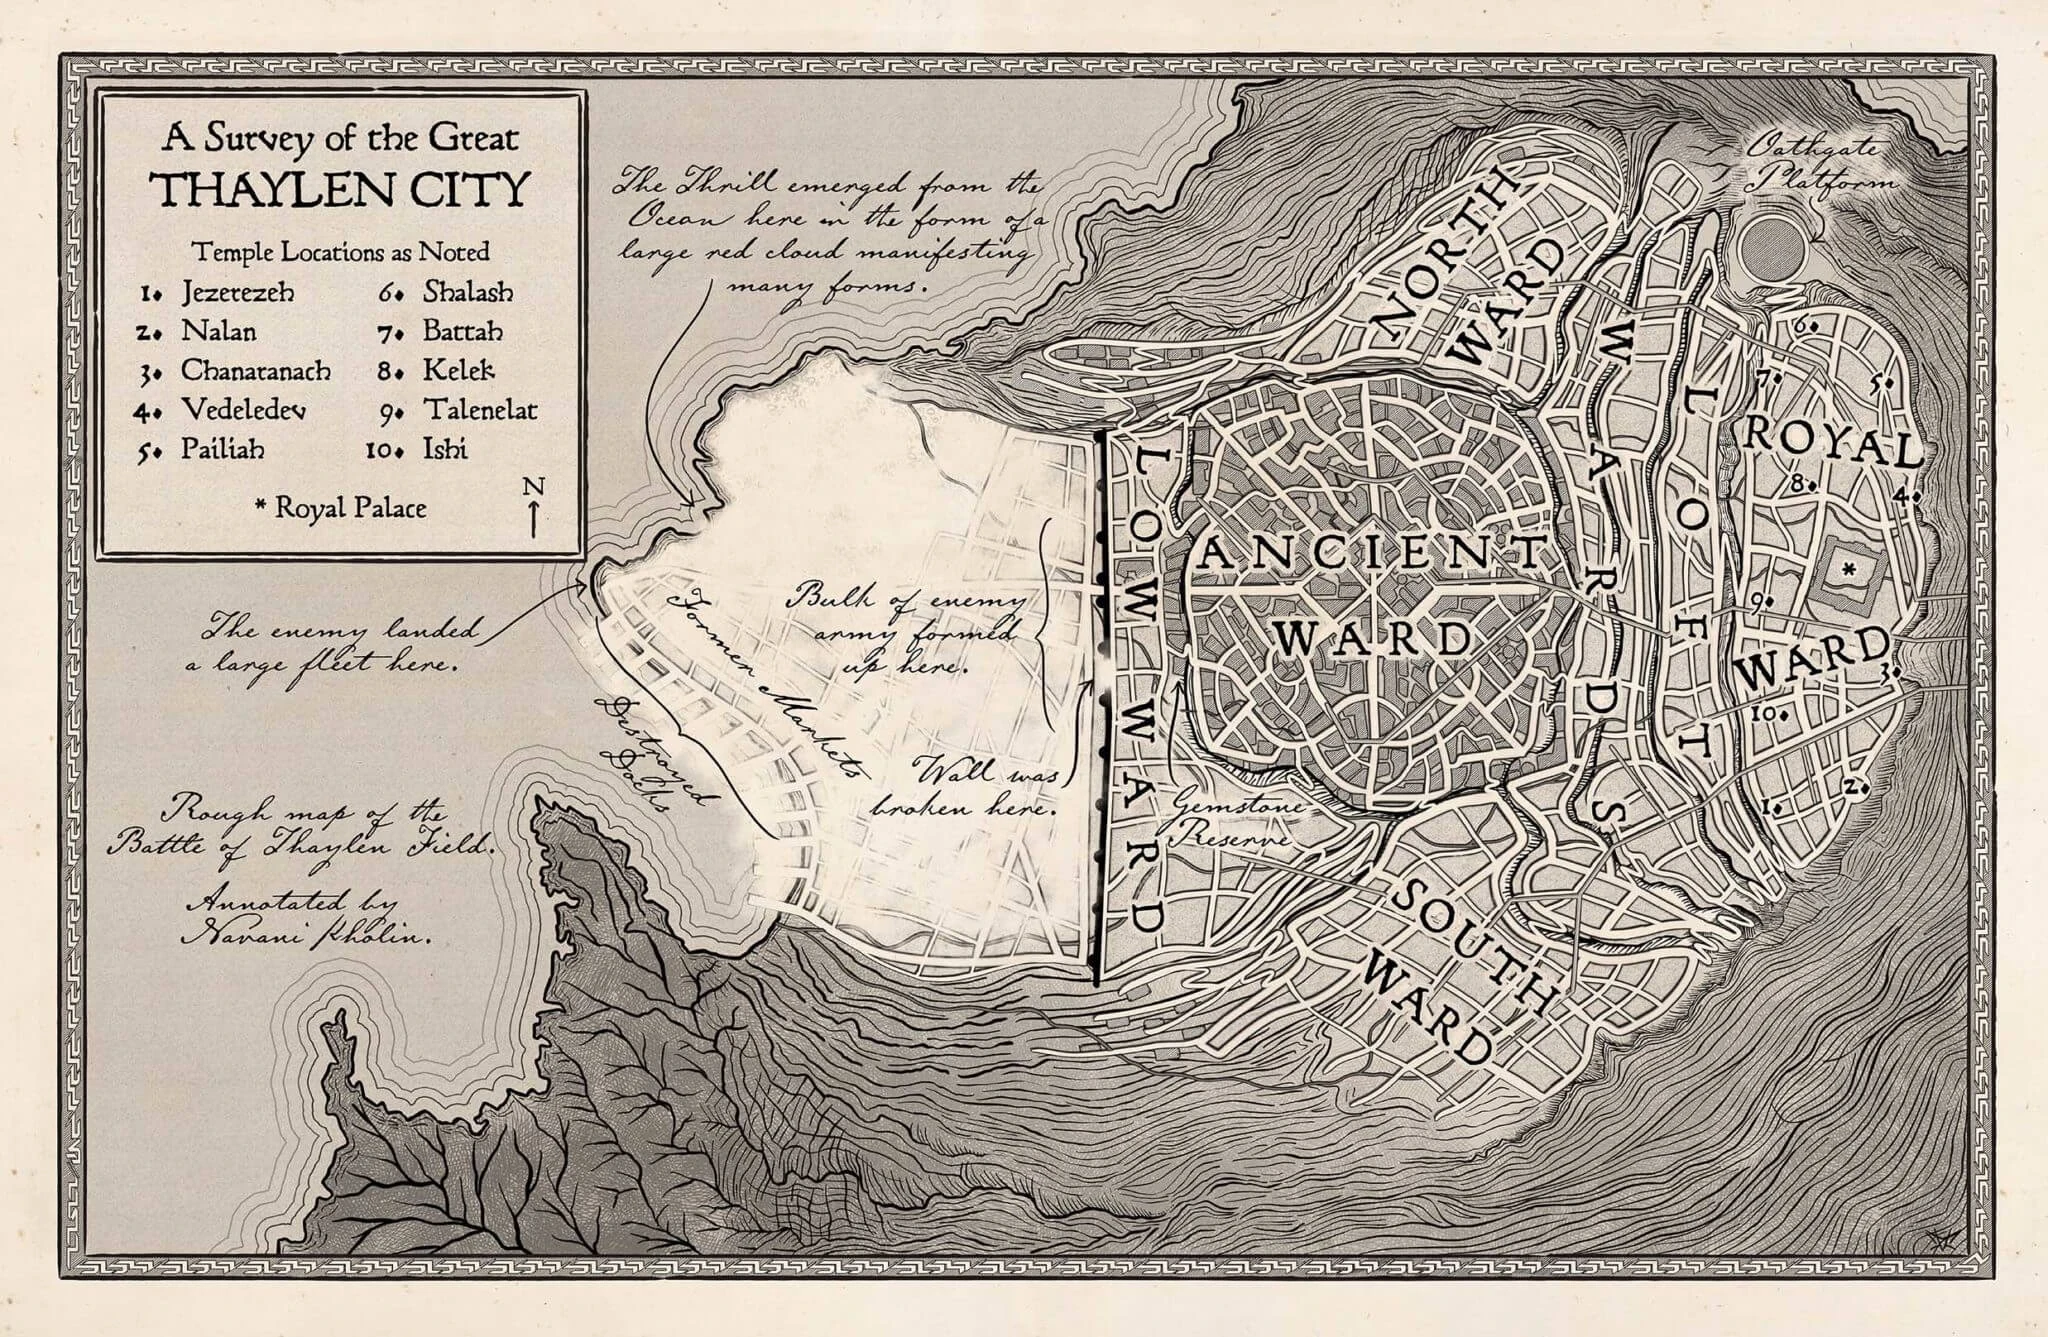 A Survey of the Great
THAYLEN CITY
Temple Locations as Noted
1. Jezerezeh
2. Nalan
3. Chanaranach
4. Vedeledev
5. Pailiah
6. Shalash
7. Battah
8. Kelek
9. Talenelat
10. Ishi
* Royal Palace
N
The Thrill emerged from the
Ocean here in the form of a
large red cloud manifesting
many forms.
Oathgate
Platform
NORTH
WARD
LOFT WARDS
ROYAL
WARD
6.
7.
5.
8.
4.
*
9.
3.
10.
2.
1.
ANCIENT
WARD
LOW WARD
The enemy landed
a large fleet here.
Former Markets
Bulk of enemy
army formed
up here.
Destroyed
Docks
Wall was
broken here.
Gemstone
Reserve
SOUTH
WARD
Rough map of the
Battle of Thaylen Field.
Annotated by
Navani Kholin.